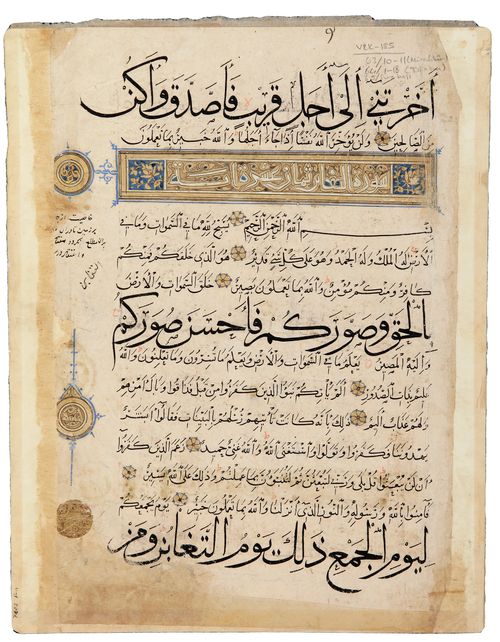 VRK-185
63/10-11
64/1-8
أَخَّرْتَنِي إِلَى أَجَلٍ قَرِيبٍ فَأَصَّدَّقَ وَأَكُنْ
مِنَ الصَّالِحِينَ وَلَنْ يُؤَخِّرَ اللَّهُ نَفْسًا إِذَا جَاءَ أَجَلُهَا وَاللَّهُ خَبِيرٌ بِمَا تَعْمَلُونَ
سورة التغابن ثمان عشرة اية
بِسْمِ اللَّهِ الرَّحْمَنِ الرَّحِيمِ يُسَبِّحُ لِلَّهِ مَا فِي السَّمَوَاتِ وَمَا فِي
الْأَرْضِ لَهُ الْمُلْكُ وَلَهُ الْحَمْدُ وَهُوَ عَلَى كُلِّ شَيْءٍ قَدِيرٌ هُوَ الَّذِي خَلَقَكُمْ فَمِنْكُمْ
كَافِرٌ وَمِنْكُمْ مُؤْمِنٌ وَاللَّهُ بِمَا تَعْمَلُونَ بَصِيرٌ خَلَقَ السَّمَوَاتِ وَالْأَرْضَ
بِالْحَقِّ وَصَوَّرَكُمْ فَأَحْسَنَ صُوَرَكُمْ
وَإِلَيْهِ الْمَصِيرُ يَعْلَمُ مَا فِي السَّمَوَاتِ وَالْأَرْضِ وَيَعْلَمُ مَا تُسِرُّونَ وَمَا تُعْلِنُونَ وَاللَّهُ
عَلِيمٌ بِذَاتِ الصُّدُورِ أَلَمْ يَأْتِكُمْ نَبَؤُا الَّذِينَ كَفَرُوا مِنْ قَبْلُ فَذَاقُوا وَبَالَ أَمْرِهِمْ
وَلَهُمْ عَذَابٌ أَلِيمٌ ذَلِكَ بِأَنَّهُ كَانَتْ تَأْتِيهِمْ رُسُلُهُمْ بِالْبَيِّنَاتِ فَقَالُوا أَبَشَرٌ
يَهْدُونَنَا فَكَفَرُوا وَتَوَلَّوْا وَاسْتَغْنَى اللَّهُ وَاللَّهُ غَنِيٌّ حَمِيدٌ زَعَمَ الَّذِينَ كَفَرُوا
أَنْ لَنْ يُبْعَثُوا قُلْ بَلَى وَرَبِّي لَتُبْعَثُنَّ ثُمَّ لَتُنَبَّؤُنَّ بِمَا عَمِلْتُمْ وَذَلِكَ عَلَى اللَّهِ يَسِيرٌ
فَآمِنُوا بِاللَّهِ وَرَسُولِهِ وَالنُّورِ الَّذِي أَنْزَلْنَا وَاللَّهُ بِمَا تَعْمَلُونَ خَبِيرٌ يَوْمَ يَجْمَعُكُمْ
لِيَوْمِ الْجَمْعِ ذَلِكَ يَوْمُ التَّغَابُنِ وَمَنْ